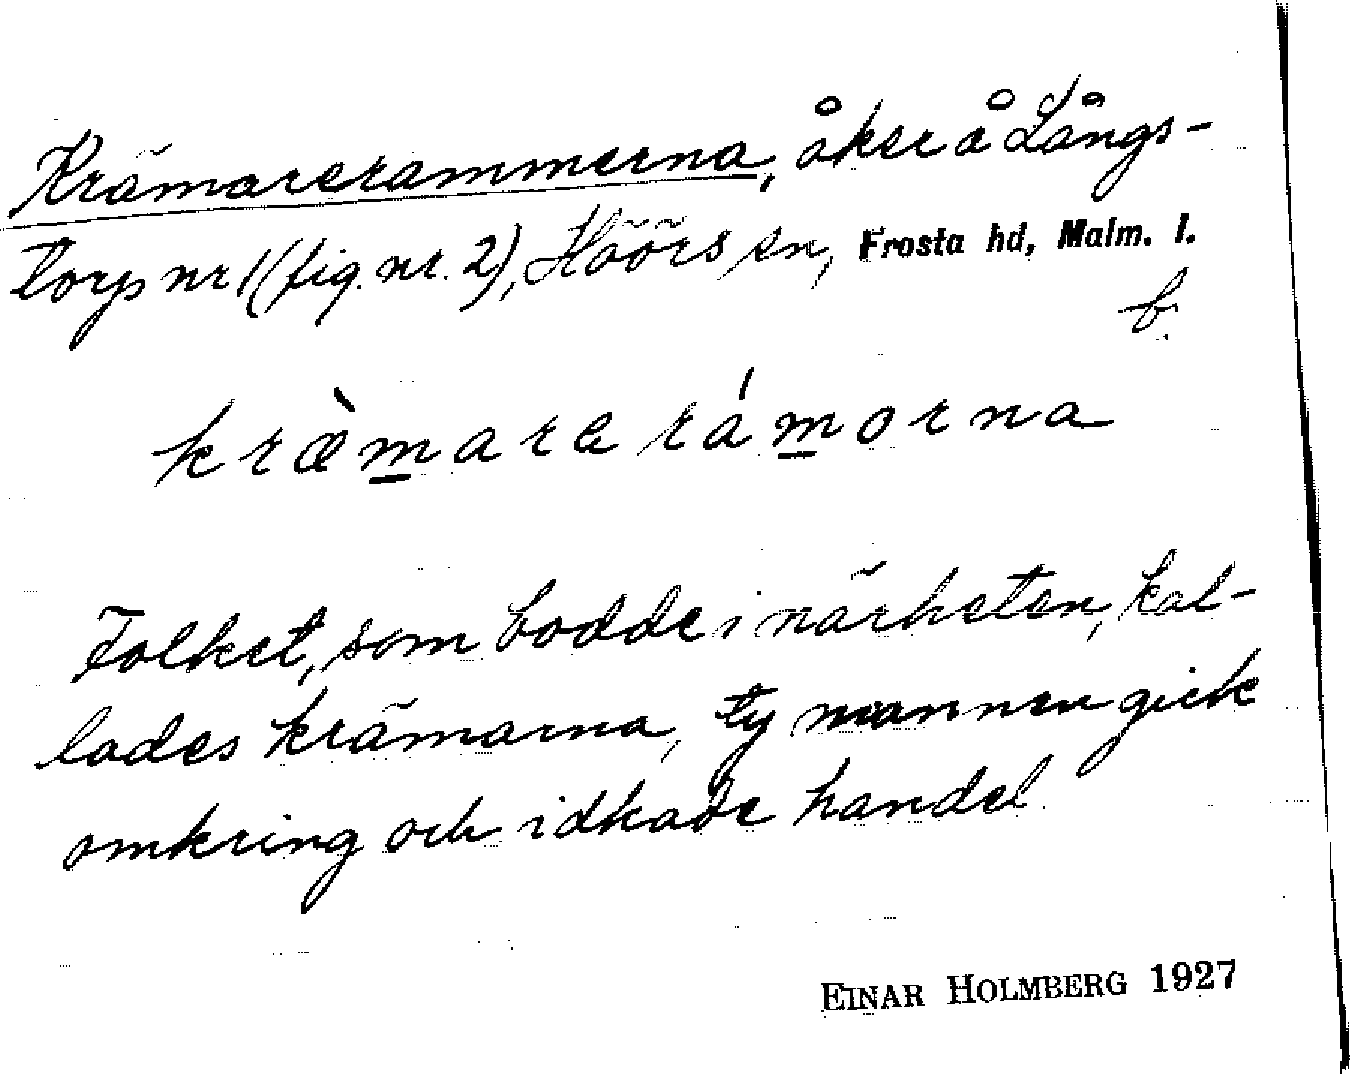 Krämarerammerna, åker å Långs-
torp nr 1 (fig. nr. 2), Höörs sn, Frosta hd, Malm. l.
b.
kræ̀m̲are rám̲orna
Folket, som bodde i närheten, kal-
lades krämarna, ty mannen gick
omkring och idkade handel.
EINAR HOLMBERG 1927